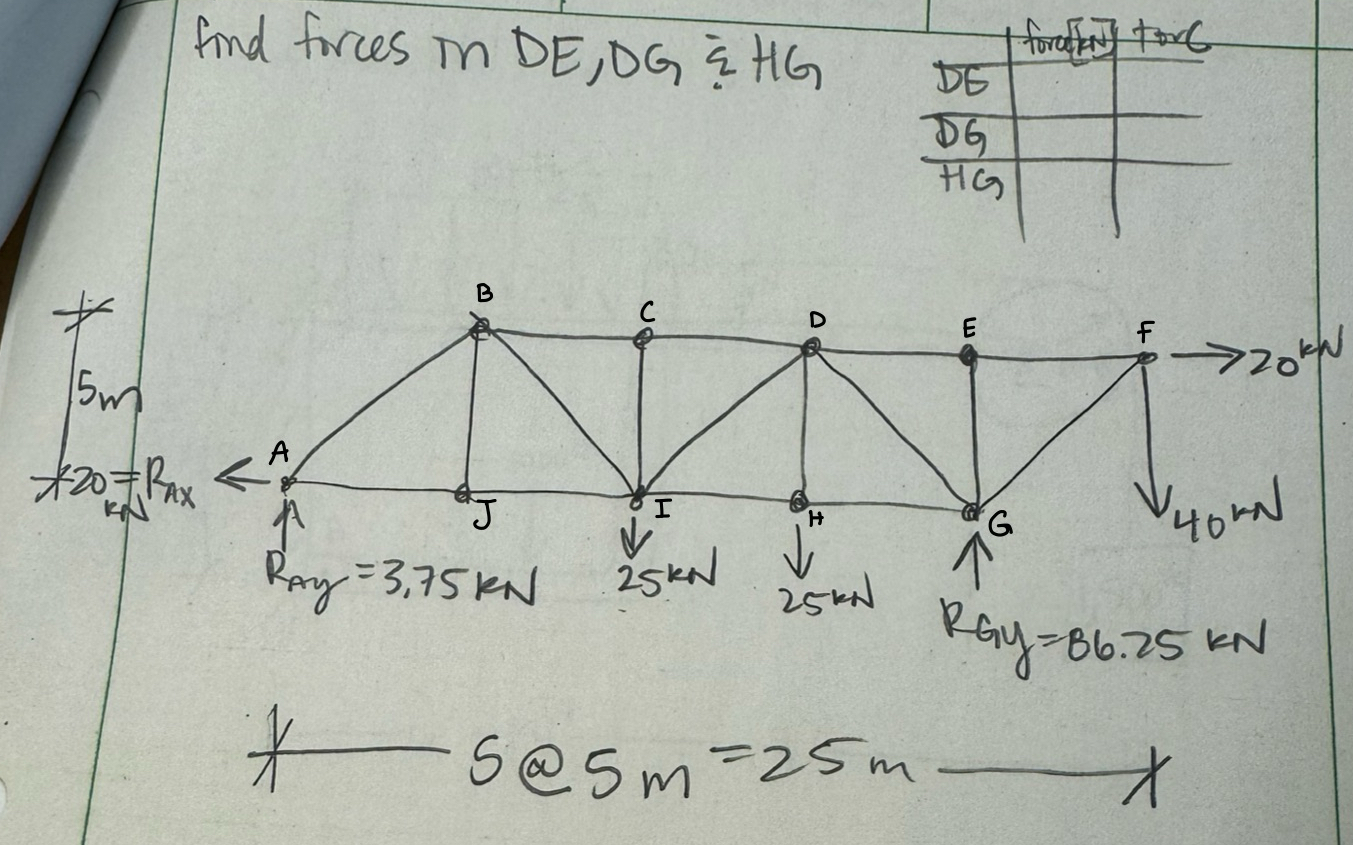 find forces in DE, DG & HG
force[kN] T or C
DE
DG
HG
B
C
D
E
F
→ 20 kN
5m
A
20 kN = RAx
J
I
H
G
40 kN
RAy = 3.75 kN
25 kN
25 kN
RGy = 86.25 kN
5 @ 5m = 25m